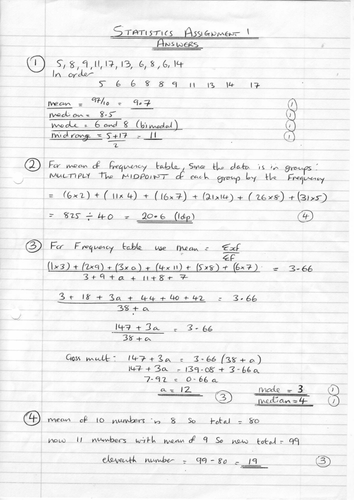 STATISTICS ASSIGNMENT 1
ANSWERS
1 5, 8, 9, 11, 17, 13, 6, 8, 6, 14
In order
5 6 6 8 8 9 11 13 14 17
mean = 97/10 = 9.7 1
median = 8.5 1
mode = 6 and 8 (bimodal) 1
midrange = 5+17/2 = 11 1
2 For mean of frequency table, since the data is in groups:
MULTIPLY THE MIDPOINT of each group by the frequency
= (6x2) + (11x4) + (16x7) + (21x14) + (26x8) + (31x5)
= 825 ÷ 40 = 20.6 (1dp) 4
3 For Frequency table we mean = Σxf/Σf
(1x3) + (2x9) + (3xa) + (4x11) + (5x8) + (6x7) = 3.66
3 + 9 + a + 11 + 8 + 7
3 + 18 + 3a + 44 + 40 + 42 = 3.66
38 + a
147 + 3a = 3.66
38 + a
Cross mult: 147 + 3a = 3.66 (38 + a)
147 + 3a = 139.08 + 3.66a
7.92 = 0.66a
a = 12 3
mode = 3 1
median = 4 1
4 mean of 10 numbers is 8 so total = 80
now 11 numbers with mean of 9 so new total = 99
eleventh number = 99 - 80 = 19 3